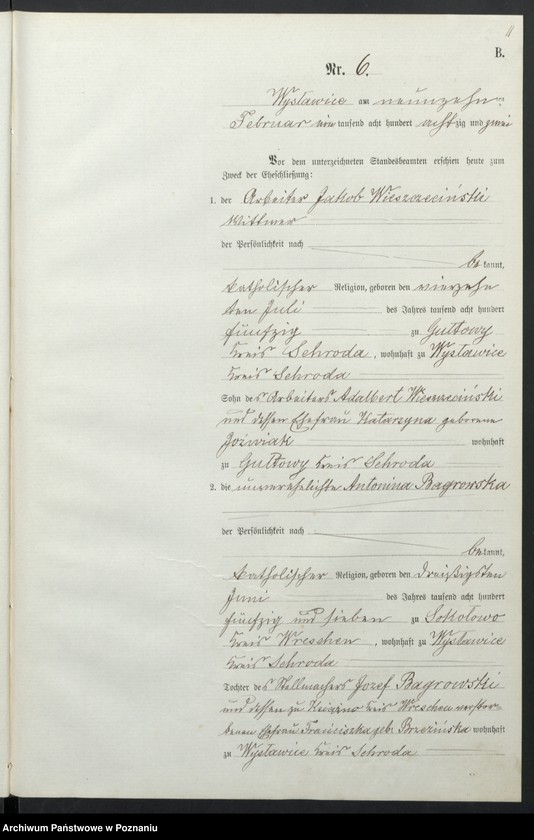 11
B.
Nr. 6.
Wysławice am neunzehn ten
Februar ein tausend acht hundert achtzig und zwei
Vor dem unterzeichneten Standesbeamten erschien heute zum
Zweck der Eheschließung:
1. der Arbeiter Jakob Wieszczeciński
Wittwer
der Persönlichkeit nach
be kannt,
katholischer Religion, geboren den vierzehn
ten Juli des Jahres tausend acht hundert
fünfzig zu Gułtowy
Kreis Schroda, wohnhaft zu Wysławice
Kreis Schroda
Sohn des Arbeiters Adalbert Wieszczeciński
und dessen Ehefrau Katarzyna geborene
Joźwiak wohnhaft
zu Gułtowy Kreis Schroda
2. die unverehelichte Antonina Bagrowska
der Persönlichkeit nach
be kannt,
katholischer Religion, geboren den dreißigsten
Juni des Jahres tausend acht hundert
fünfzig und sieben zu Sokołowo
Kreis Wreschen, wohnhaft zu Wysławice
Kreis Schroda
Tochter des Stellmachers Jozef Bagrowski
und dessen zu Kreis Wreschen verstor-
benen Ehefrau Franciszka geb. Brzezińska wohnhaft
zu Wysławice Kreis Schroda
Archiwum Państwowe w Poznaniu